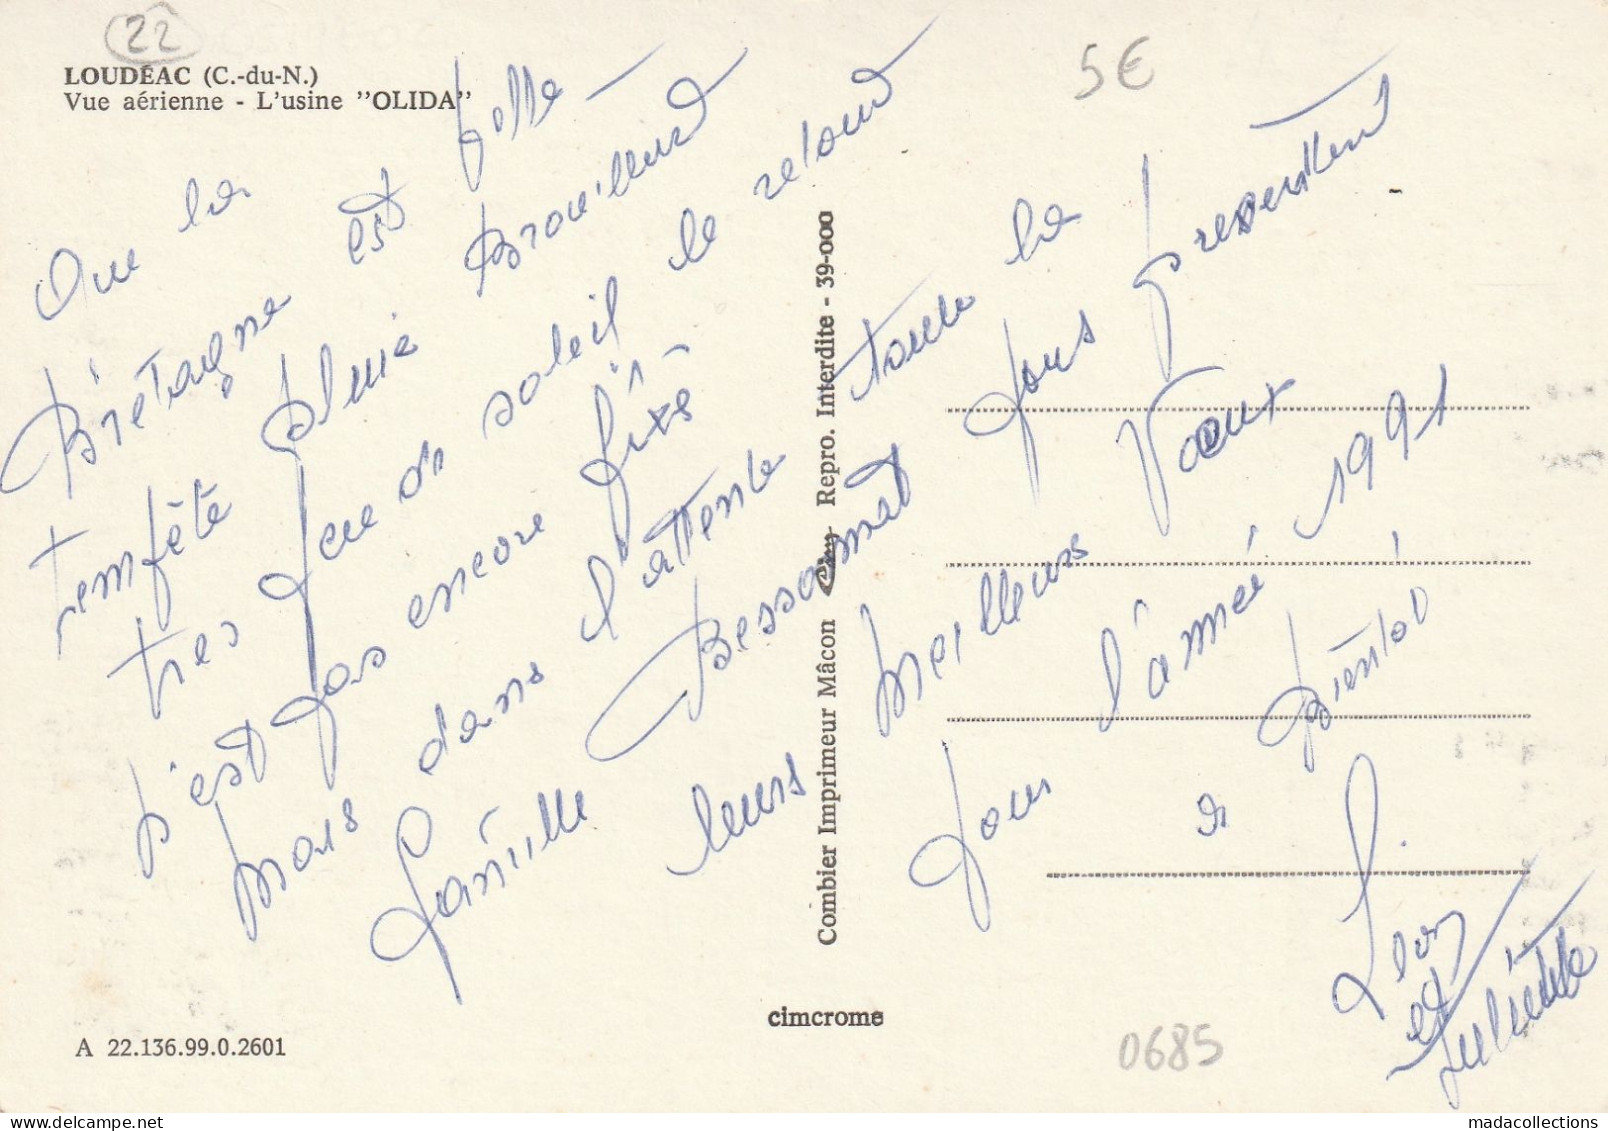 22
LOUDÉAC (C.-du-N.)
Vue aérienne - L'usine "OLIDA"
5€
Que la
Brétagne est belle -
tempête pluie Brouillard
tres peu de soleil le retour
n'est pas encore fixé
mais dans l'attente toute la
famille Bessonnat vous presentent
leurs meilleurs Vœux
pour l'année 1991
a bientot
Léon
et Juliette
Combier Imprimeur Mâcon Cim Repro. Interdite - 39-000
cimcrome
A 22.136.99.0.2601
0685
madacollections